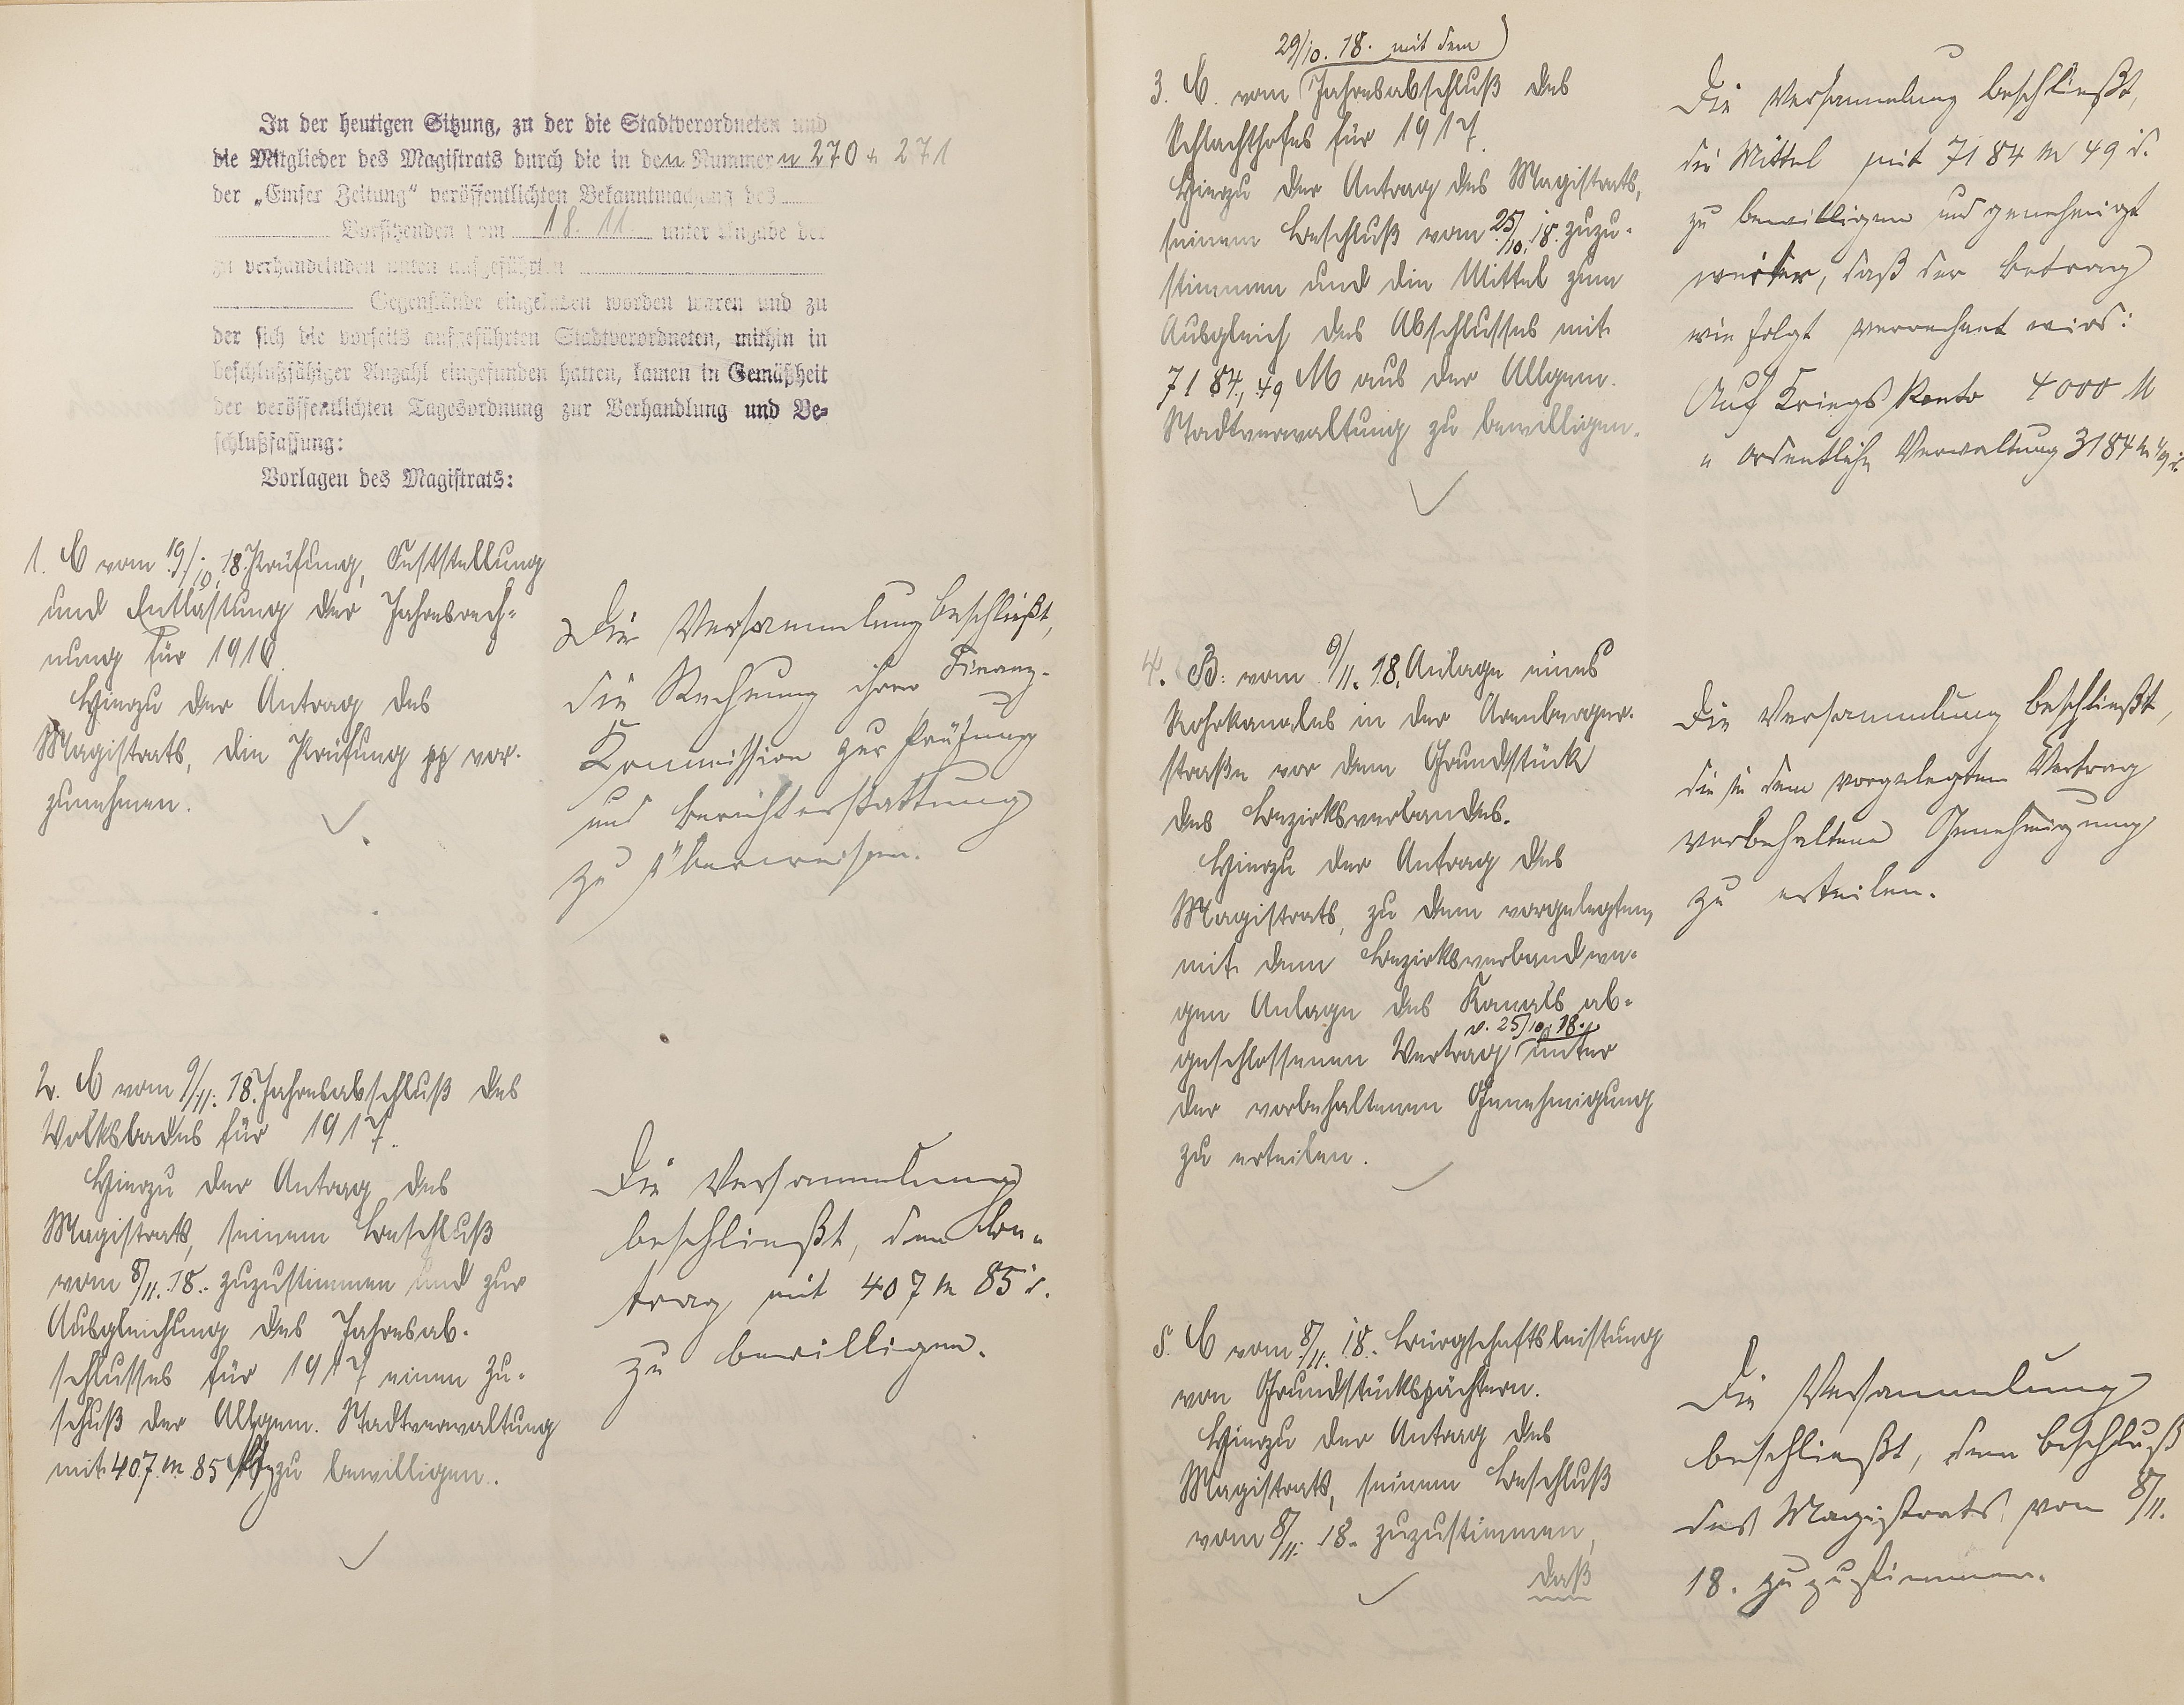 In der heutigen Sitzung, zu der die Stadtverordneten und
die Mitglieder des Magistrats durch die in den Nummern 270 + 271
der „Emser Zeitung“ veröffentlichten Bekanntmachung des
Vorsitzenden vom 18. 11. unter Angabe der
zu verhandelnden unten aufgeführten
Gegenstände eingeladen worden waren und zu
der sich die vorseits aufgeführten Stadtverordneten, mithin in
beschlußfähiger Anzahl eingefunden hatten, kamen in Gemäßheit
der veröffentlichten Tagesordnung zur Verhandlung und Be-
schlußfassung:
Vorlagen des Magistrats:
1. C vom 19./10. 18. Prüfung, Feststellung
und Entlastung der Jahresrech-
nung für 1916.
Hierzu der Antrag des
Magistrats, die Prüfung pp vor-
zunehmen.
Die Versammlung beschließt,
die Rechnung ihrer Finanz-
Kommission zur Prüfung
und Berichterstattung
zu überweisen.
2. C vom 9/11. 18. Jahresabschluß des
Volksbades für 1917.
Hierzu der Antrag des
Magistrats, seinem Beschluß
vom 8/11. 18. zuzustimmen und zur
Ausgleichung des Jahresab-
schlusses für 1917 einen Zu-
schuß der Allgem. Stadtverwaltung
mit 407 M 85 zu bewilligen.
Die Versammlung
beschließt, den Be-
trag mit 407 M 85 d.
zu bewilligen.
29/10. 18. mit dem
3. C. vom Jahresabschluß des
Schlachthofes für 1917.
Hierzu der Antrag des Magistrats,
seinem Beschluß vom 25/10. 18. zuzu-
stimmen und die Mittel zum
Ausgleich des Abschlusses mit
7184,49 M aus der Allgem.
Stadtverwaltung zu bewilligen.
Die Versammlung beschließt,
die Mittel mit 7184 M 49 d.
zu bewilligen und genehmigt
weiter, daß der Betrag
wie folgt verrechnet wird:
Auf Kriegs Konto 4000 M
" ordentliche Verwaltung 3184 M 49 d.
4. B. vom 9/11. 18. Anlage eines
Rohrkanales in der Arenberger-
straße vor dem Grundstück
des Bezirksverbandes.
Hierzu der Antrag des
Magistrats, zu dem vorgelegten,
mit dem Bezirksverband we-
gen Anlage des Kanals ab-
geschlossenen Vertrag v. 25/10. 18. unter
der vorbehaltenen Genehmigung
zu erteilen.
Die Versammlung beschließt,
die in dem vorgelegten Vertrag
vorbehaltene Genehmigung
zu erteilen.
5. C vom 8/11. 18. Bürgschaftsleistung
von Grundstückspächtern.
Hierzu der Antrag des
Magistrats, seinem Beschluß
vom 8/11. 18. zuzustimmen,
daß
Die Versammlung
beschließt, dem Beschluß
des Magistrats vom 8/11.
18. zuzustimmen.